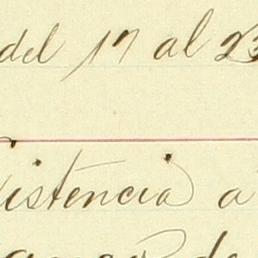 del 17 al 23
istencia a
de